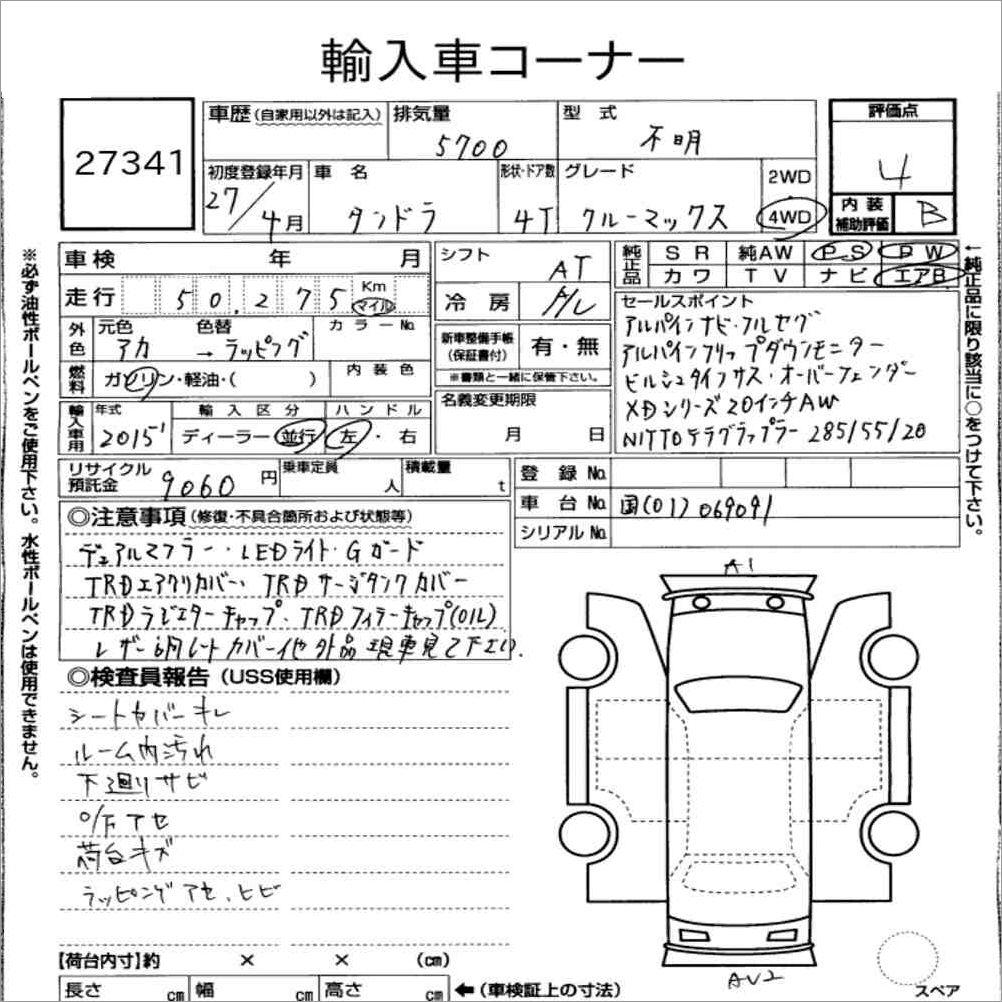 輸入車コーナー
27341
車歴 (自家用以外は記入) 排気量 5700 型式 不明 評価点 4
初度登録年月 27/4月 車名 タンドラ 形状・ドア数 4T グレード クルーマックス 2WD 4WD 内装補助評価 B
車検 年 月 シフト AT 純正品 SR 純AW PS PW
カワ TV ナビ エアB
走行 50,275 Km マイル 冷房 A/C
外色 元色 アカ 色替 → ラッピング カラーNo. 新車整備手帳 (保証書付) 有・無
※書類と一緒に保管下さい。
燃料 ガソリン・軽油・( ) 内装色
名義変更期限 月 日
輸入車用 年式 2015' 輸入区分 ディーラー 並行 ハンドル 左・右
セールスポイント
アルパインナビ・フルセグ
アルパインフリップダウンモニター
ビルシュタインサス・オーバーフェンダー
XDシリーズ20インチAW
NITTOテラグラップラー 285/55/20
リサイクル預託金 9060 円 乗車定員 人 積載量 t
登録No.
車台No. 国(01)069091
シリアルNo.
◎注意事項 (修復・不具合箇所および状態等)
デュアルマフラー・LEDライト・Gガード
TRDエアクリカバー、TRDサージタンクカバー
TRDラジエターキャップ・TRDフィラーキャップ(OIL)
レザー調シートカバー他外品 現車見て下さい.
◎検査員報告 (USS使用欄)
シートカバーキレ
ルーム内汚れ
下廻りサビ
アセ
荷台キズ
ラッピングアセ、ヒビ
A1
AV2
スペア
【荷台内寸】約 × × (cm)
長さ cm 幅 cm 高さ cm ←(車検証上の寸法)
※必ず油性ボールペンをご使用下さい。水性ボールペンは使用できません。
←純正品に限り該当に○をつけて下さい。